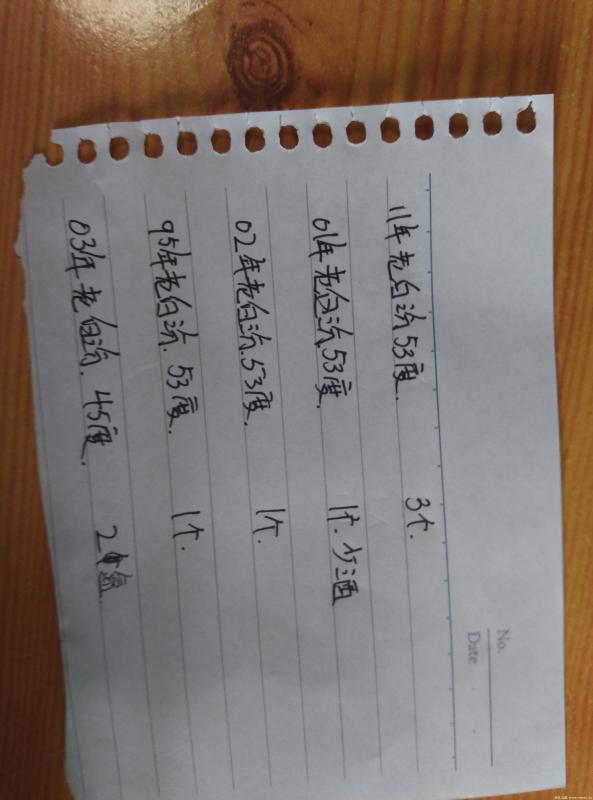 No.
Date
11年老白汾53度. 3个.
01年老白汾53度. 1个. 少酒
02年老白汾.53度. 1个.
95年老白汾. 53度. 1个.
03年老白汾. 45度. 2盒